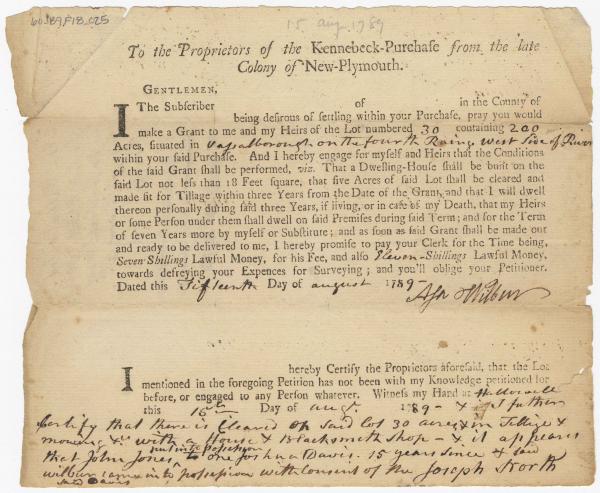 60.F89.F18.C25
15 Aug. 1789
To the Proprietors of the Kennebeck-Purchase from the late
Colony of New-Plymouth.
GENTLEMEN,
I The Subscriber of in the County of
being desirous of settling within your Purchase, pray you would
make a Grant to me and my Heirs of the Lot numbered 30 containing 200
Acres, situated in Vassalborough on the fourth Raing West Side of River
within your said Purchase. And I hereby engage for myself and Heirs that the Conditions
of the said Grant shall be performed, viz. That a Dwelling-House shall be built on the
said Lot not less than 18 Feet square, that five Acres of said Lot shall be cleared and
made fit for Tillage within three Years from the Date of the Grant, and that I will dwell
thereon personally during said three Years, if living, or in case of my Death, that my Heirs
or some Person under them shall dwell on said Premises during said Term; and for the Term
of seven Years more by myself or Substitute; and as soon as said Grant shall be made out
and ready to be delivered to me, I hereby promise to pay your Clerk for the Time being,
Seven Shillings Lawful Money, for his Fee, and also Eleven-Shillings Lawful Money,
towards defreying your Expences for Surveying; and you'll oblige your Petitioner.
Dated this Fifteenth Day of august 1789-
Asa Wilbur
I hereby Certify the Proprietors aforesaid, that the Lot
mentioned in the foregoing Petition has not been with my Knowledge petitioned for
before, or engaged to any Person whatever. Witness my Hand at Hallowell
this 15th Day of augt. 1789- & I futher
Certify that there is Cleared on said Lot 30 acres in Tillige &
mowing &c with a House & Blacksmith Shop - & it appears
that John Jones put into possession one Joshua Davis. 15 years since & said
wilbur came into possession with Consent of the said Davis
Joseph North